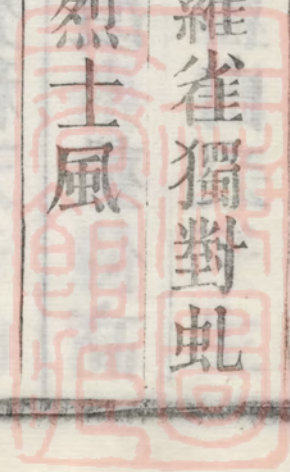 羅雀獨對虬
烈士風